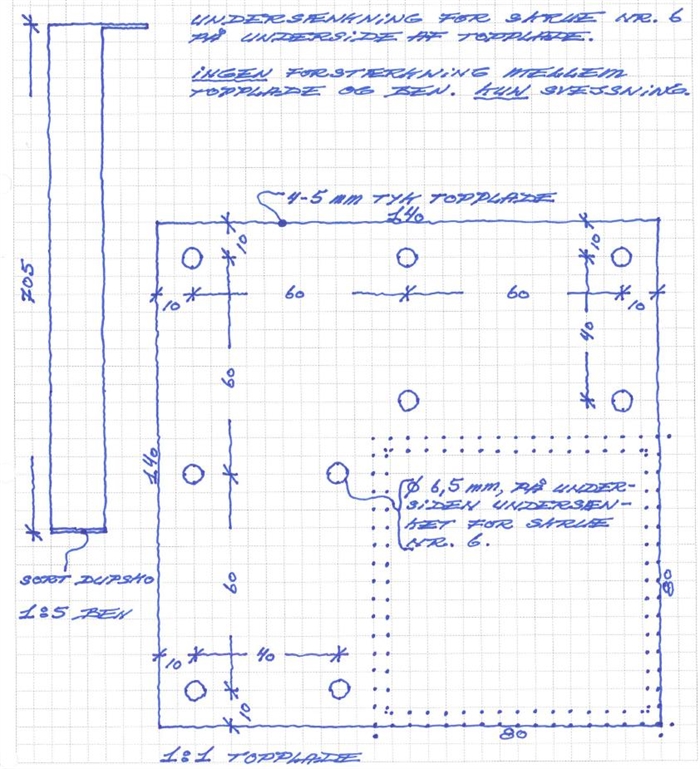 UNDERSÆNKNING FOR SKRUE NR. 6
PÅ UNDERSIDE AF TOPPLADE.
INGEN FORSTÆRKNING MELLEM
TOPPLADE OG BEN. KUN SVEJSNING.
4-5 mm TYK TOPPLADE
140
10
10
10
60
60
10
705
40
60
140
Ø 6,5 mm, PÅ UNDER-
SIDEN UNDERSÆN-
KET FOR SKRUE
NR. 6.
SORT DUPSKO
60
80
1:5 BEN
10
40
10
80
1:1 TOPPLADE